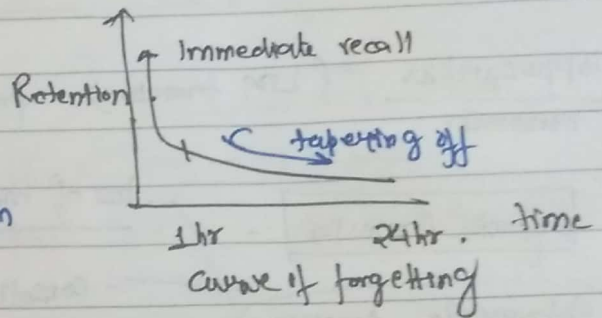 Immediate recall
Retention
tapering off
n
1hr 24hr. time
curve of forgetting